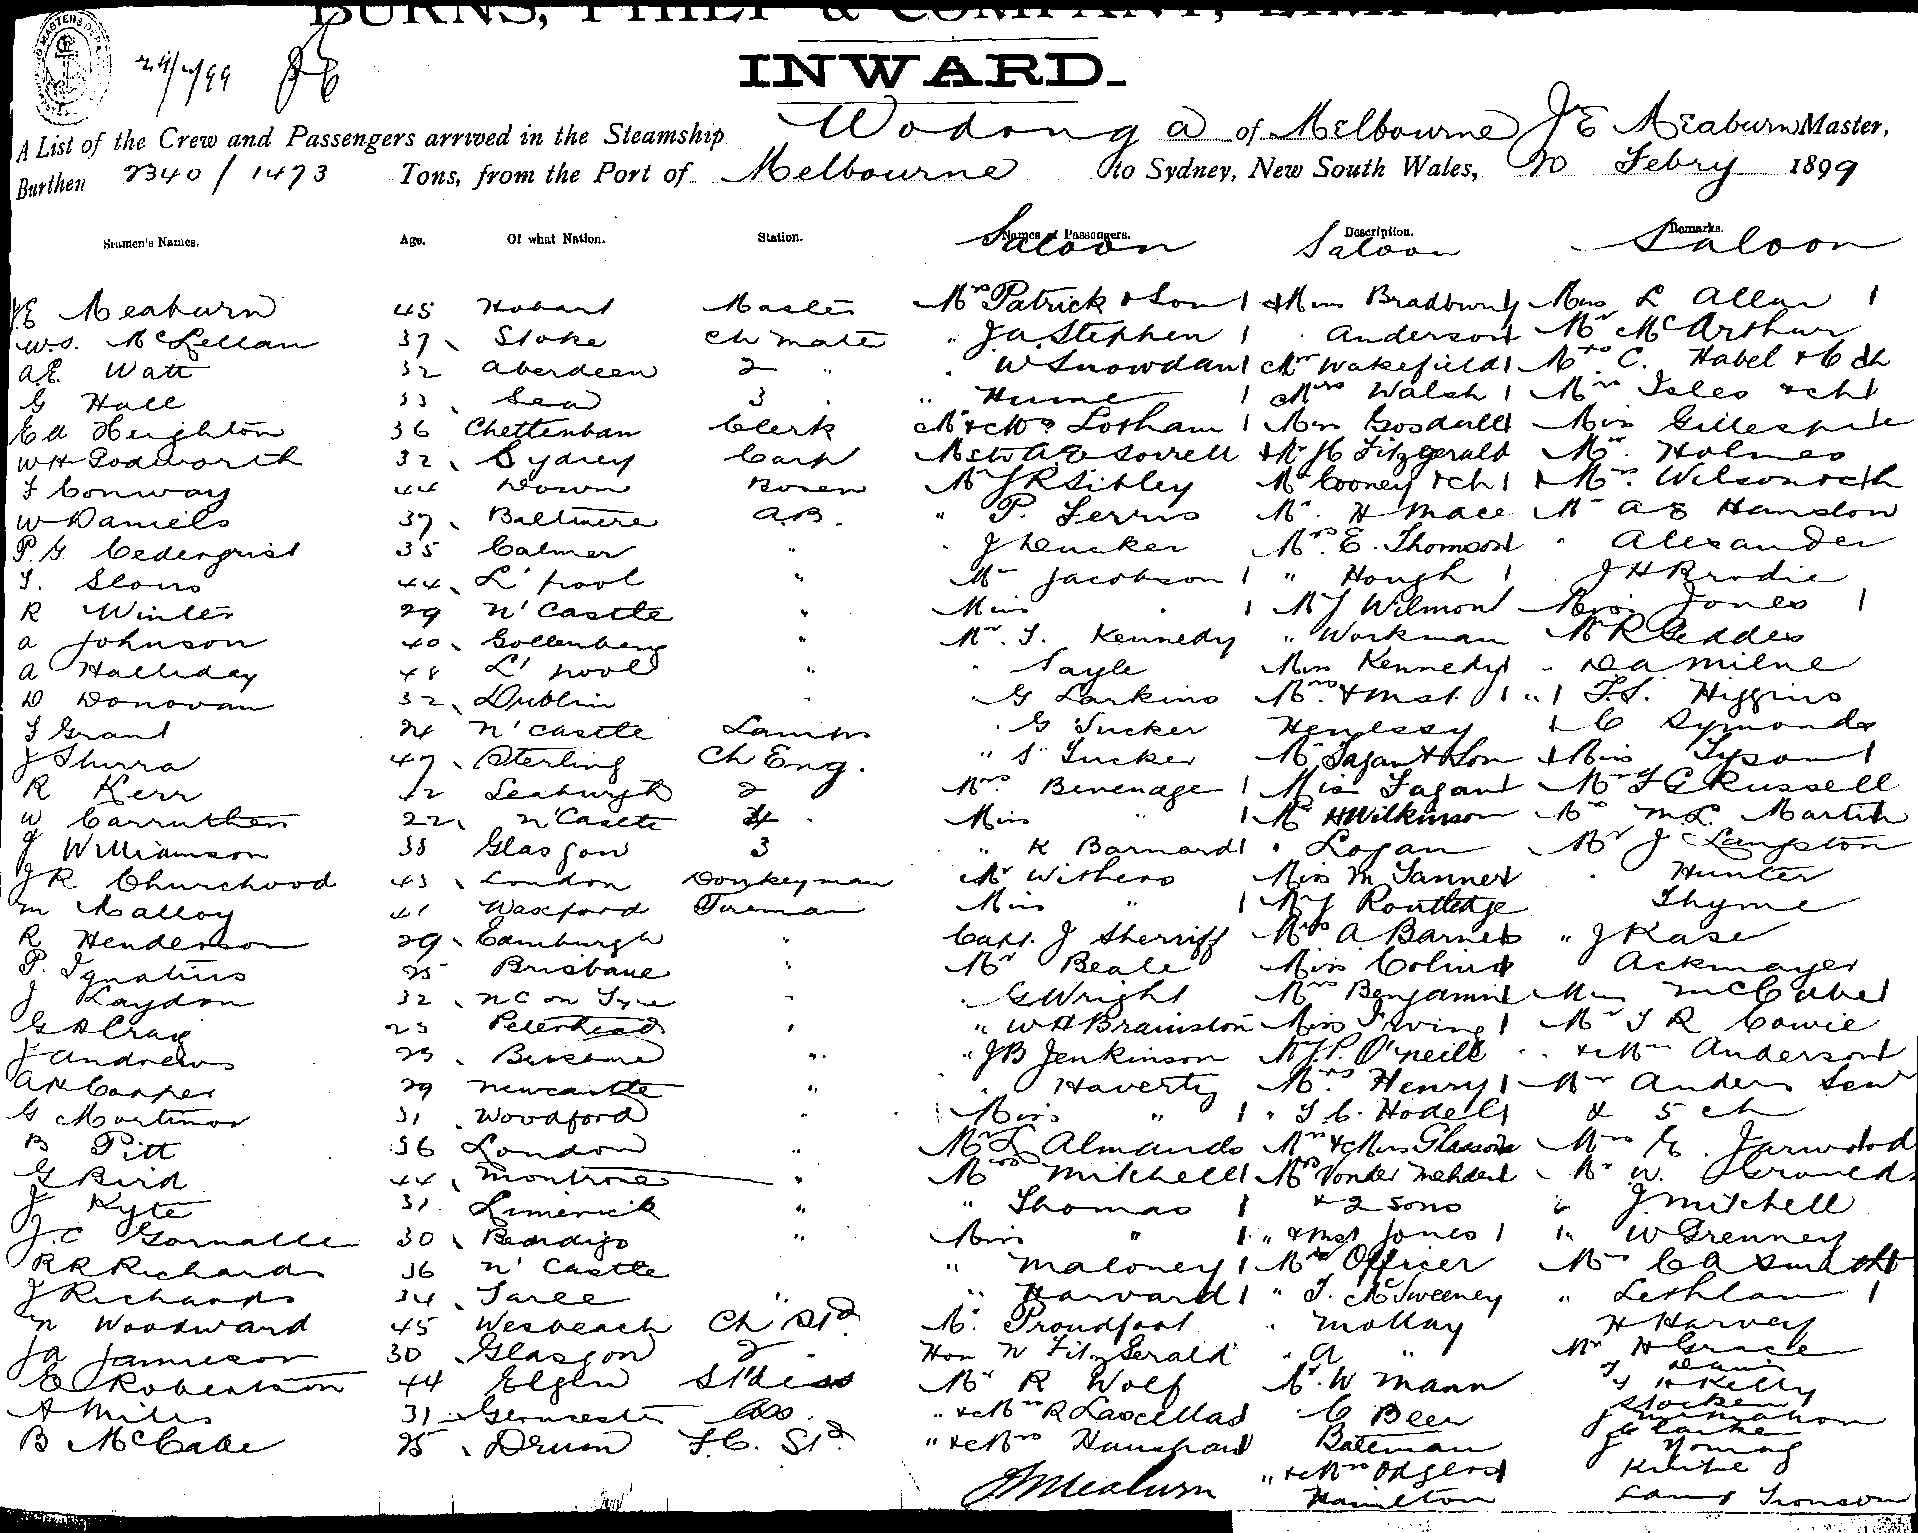 BURNS, PHILP & COMPANY,
INWARD.
A List of the Crew and Passengers arrived in the Steamship Wodonga of Melbourne J E Meaburn Master,
Burthen 2340/1473 Tons, from the Port of Melbourne to Sydney, New South Wales, 20 Febry 1899
Seamen's Names. Age. Of what Nation. Station. Names of Passengers. Description. Remarks.
Saloon Saloon Saloon
J.E Meaburn 45 Hobart Master Mrs Patrick & Son 1 & Miss Bradbury Miss L Allan 1
W.S. McLellan 37 Stoke Ch Mate " J.A. Stephen 1 Anderson Mr McArthur
A.E. Watt 32 Aberdeen 2 " W Snowdan 1 Mr Wakefield 1 Mrs C. Habel & 6 ch
G Hall 33 Sea 3 " Hume 1 Mrs Walsh 1 Mrs Isles & ch 1
Ed Heighton 36 Cheltenham Clerk Mr & Mrs Lotham 1 Miss Gosdall Miss Gillespie
WH Podworth 32 Sydney Carp Sorrell & Mr H Fitzgerald Mr. Holmes
T Conway 44 Down Bosen Mr J R Sibley Mr Cooney & ch 1 & Mrs. Wilson & ch
W Daniels 37 Baltimore A.B. " P. Ferris Mr. H Mace Mr A E Hanston
P.G. Cedergrist 35 Calmer " J Ducker Mrs. E. Thomson " Alexander
T. Slous 44 L'pool " Mrs Jacobson 1 " Hough 1 J H Brodie
R Winter 29 N'Castle " Miss " 1 Mr J Wilmont Miss Jones 1
A Johnson 40 Gottenberg " Mr. T. Kennedy " Workman Mr R Geddes
A Halliday 48 L'pool " Nayle Miss Kennedy 1 " D A Milne
D Donovan 32 Dublin " G Larkins Mrs. & Mst. 1 " 1 T.S. Higgins
T Grant 24 N'Castle Lamps " G Tucker Henessy 1 C Symonds
J Shurra 47 Sterling Ch Eng. " S Tucker Mr Fagan & Son & Miss Tyson 1
R Kerr 42 2 Mrs. Bevenage 1 Miss Fagan 1 Mr T G Russell
W Carruthers 22 N'Castle 4 Miss " 1 Mr H Wilkinson Mrs M.L. Martin
J Williamson 38 Glasgow 3 " K Barnard 1 " Logan Mr J C Langston
J R Churchood 43 London Donkeyman Mr Withers Miss M Tanner " Hunter
M Malloy 41 Waxford Fireman Miss " 1 Mr J Routledge Thyme
R Henderson 29 Edinburgh " Capt. J Sherriff Mrs A. Barnes " J Kase
P. Ignatius 25 Brisbane " Mr Beale Miss Colins Ackmayer
J Laydon 32 N C on Tyne " G Wright Mrs Benjamin 1 Miss McCabe 1
G A Craig 23 Peterhead " " W H Brainston Miss Irving 1 Mr T R Cowie
J Andrews 29 Brisbane " " J B Jenkinson Mr J.P. O'neill " & Mrs Anderson
A H Cooper 29 Newcastle " " Haverty Mrs Henry 1 Mr Anders Senr
G Mortimor 31 Woodford " Miss " 1 " T.C. Hodell 1 & 5 ch
B Pitt 36 London " Mr L Almands Mr & Miss Glasson Mrs E. Jarwood
G Bird 44 Montrose " Mrs Mitchell 1 Mrs Vonder Mehden 1 Mr W.
J Kyte 31 Limerick " " Thomas 1 & 2 sons " J. Mitchell
J.C Gornalle 30 Bendigo " Miss " 1 " & Mst Jones 1 " W Grenney
R R Richards 36 N'Castle " Maloney 1 Mrs Officer Mrs C A Smith
J Richards 34 Taree " " Harvard 1 " T. McSweeney " Lethlan 1
N Woodward 45 Wesbeach Ch Std. Mr. Proudfoot " Mollay H Harvey
J A Jamieson 30 Glasgow 2 Hon N FitzGerald " A " Mr H Grace
E Robertson 44 Elgin St'dess Mr R Wolf Mr. W Mann
T Davis
H Kelly
A Miles 31 Gloucester " & Mrs R Lascellas 1 " C Beer Stocken
J McMahon
B McCabe 25 Drum F.C. Std. " & Mrs Bateman C Clarke
J Young
JE Meaburn " & Mrs Odgers 1
Hamilton